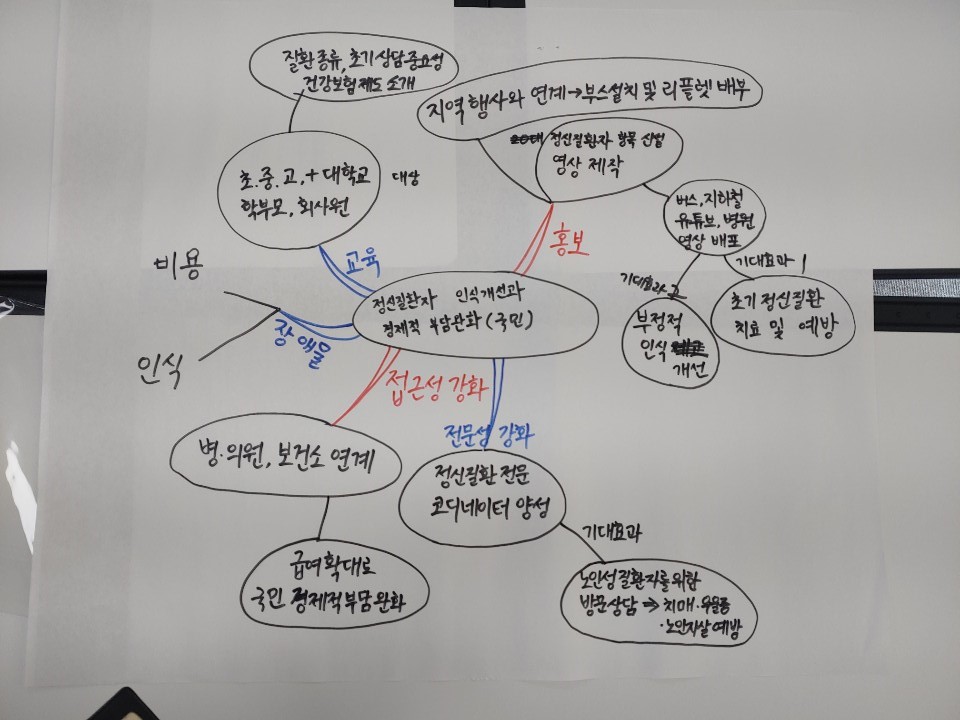 질환종류, 초기상담중요성
건강보험제도 소개
지역행사와 연계→부스설치 및 리플렛 배부
정신질환자 항목 신설
영상 제작
초.중.고,+대학교
학부모, 회사원
대상
버스, 지하철
유튜브, 병원
영상 배포
홍보
교육
비용
기대효과 1
기대효과 2
정신질환자 인식개선과
경제적 부담완화(국민)
초기정신질환
치료 및 예방
부정적
인식
개선
장애물
인식
접근성 강화
전문성 강화
병·의원, 보건소 연계
정신질환 전문
코디네이터 양성
기대효과
급여확대로
국민 경제적부담완화
노인성질환자를위한
방문상담 ⇒ 치매·우울증
·노인자살예방